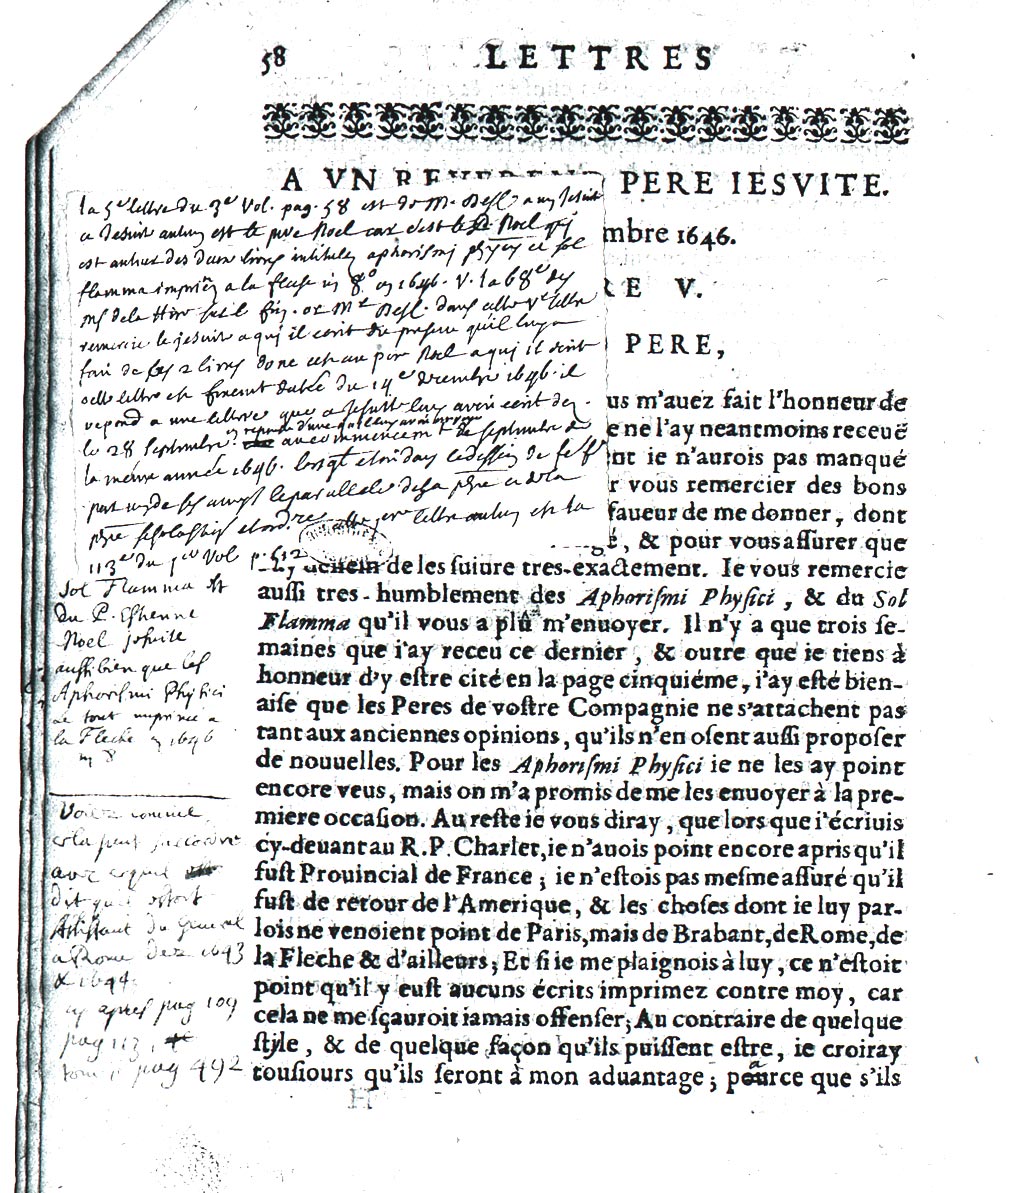 58 LETTRES
A VN REVEREND PERE IESVITE.
la 5e lettre du 3e Vol. pag. 58 est de Mr. Desc. a un Jesuite
ce Jesuite est le pere Noel car c'est le P. Noel qui
est autheur des deux livres intitulez aphorismi physici et sol
flamma a la fleche in 8° en 1646. V. la 68e des
ms de la Hire
remercie le jesuite a qui il ecrit du present qu'il luy a
fait de ses 2 livres donc c'est au pere Noel a qui il ecrit
cette lettre est datée du 14e decembre 1646. il
repond a une lettre que ce Jesuite luy avoit écrit
le 28 septembre
la même année 1646.
113e du 1er Vol p. 512
mbre 1646.
RE V.
PERE,
us m'auez fait l'honneur de
e ne l'ay neantmoins receuë
nt ie n'aurois pas manqué
r vous remercier des bons
faueur de me donner, dont
, & pour vous aſſurer que
de les ſuiure tres-exactement. Ie vous remercie
auſſi tres-humblement des Aphoriſmi Phyſici, & du Sol
Flamma qu'il vous a plû m'enuoyer. Il n'y a que trois ſe-
maines que i'ay receu ce dernier, & outre que ie tiens à
honneur d'y eſtre cité en la page cinquiéme, i'ay eſté bien-
aiſe que les Peres de voſtre Compagnie ne s'attachent pas
tant aux anciennes opinions, qu'ils n'en oſent auſſi propoſer
de nouuelles. Pour les Aphoriſmi Phyſici ie ne les ay point
encore veus, mais on m'a promis de me les enuoyer à la pre-
miere occaſion. Au reſte ie vous diray, que lors que i'écriuis
cy-deuant au R.P. Charlet, ie n'auois point encore apris qu'il
fuſt Prouincial de France; ie n'eſtois pas meſme aſſuré qu'il
fuſt de retour de l'Amerique, & les choſes dont ie luy par-
lois ne venoient point de Paris, mais de Brabant, de Rome, de
la Fleche & d'ailleurs; Et ſi ie me plaignois à luy, ce n'eſtoit
point qu'il y euſt aucuns écrits imprimez contre moy, car
cela ne me ſçauroit iamais offenſer; Au contraire de quelque
ſtyle, & de quelque façon qu'ils puiſſent eſtre, ie croiray
touſiours qu'ils ſeront à mon aduantage; pource que s'ils
H
Sol Flamma est
du P. Estienne
Noel jesuite
aussi bien que les
Aphorismi Physici
le tout imprimé a
la Fleche en 1646
in 8°
Voiez comment
cela peut s'accorder
avec ce que
dit qu'il estoit
Assistant du General
a Rome dez 1643
& 1644
cy apres pag 109
pag 113,
tom 1 pag 492